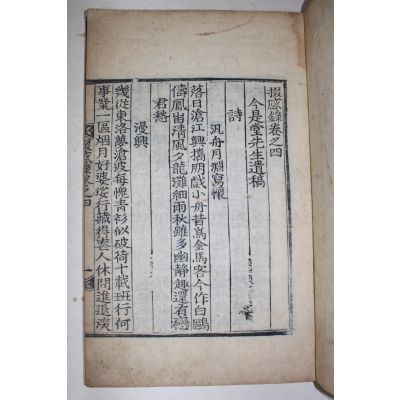 掇感錄卷之四
今是堂先生遺稿
詩
汎舟月淵寫懷
落日滄江興擕朋戱小舟昔爲金馬客今作白鷗
儔鳳凷淸風夕龍灘細雨秋雖多幽靜趣還有戀
君愁
漫興
幾從東洛夢滄波每愧靑衫似破荷十載班行何
事業一區烟月好婆娑行藏得喪人休問進退